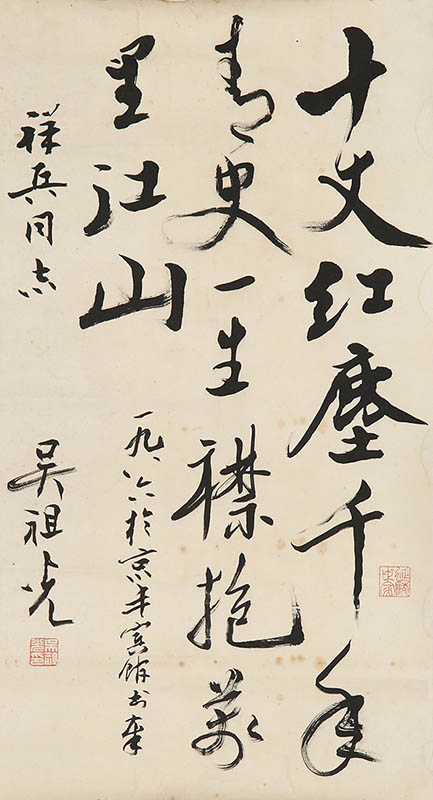 十丈红塵千年
青史一生襟抱萬
里江山
一九八六於京丰賓館书奉
祥兵同志
吴祖光